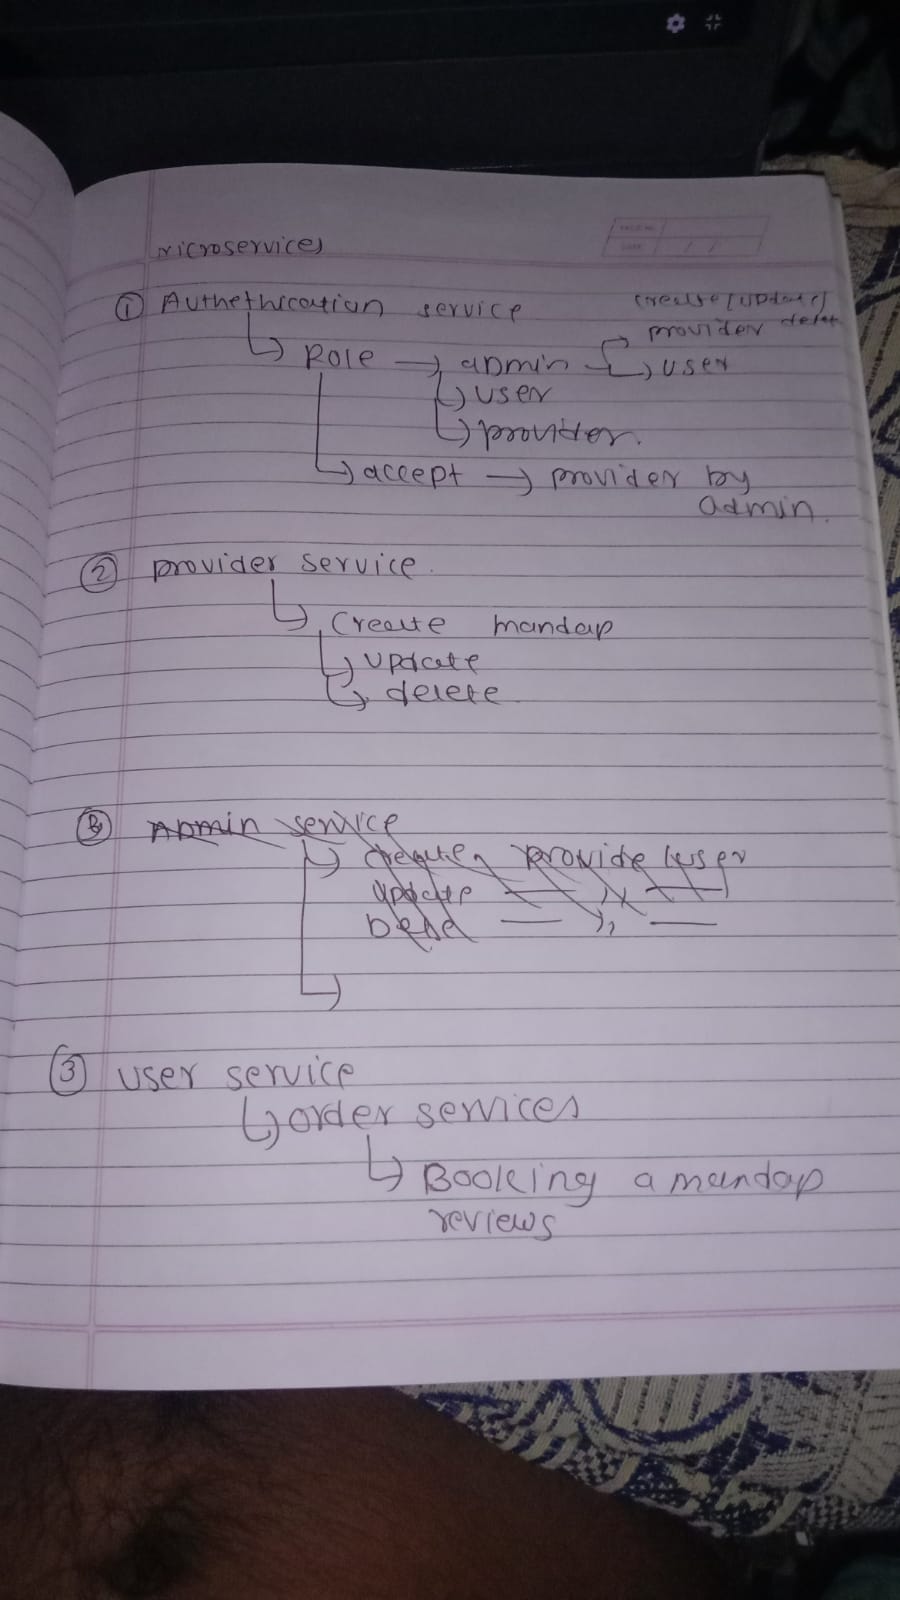 Microservices
① Authethication service
create/update/
provider delet
Role → admin → user
↳ user
↳ provider.
↳ accept → provider by
admin.
② provider service.
↳ create mandap
↳ update
↳ delete
③ Admin service
↳ create, provide user
update — ,, —
— ,, —
③ user service
↳ order services
↳ Booking a mandap
reviews